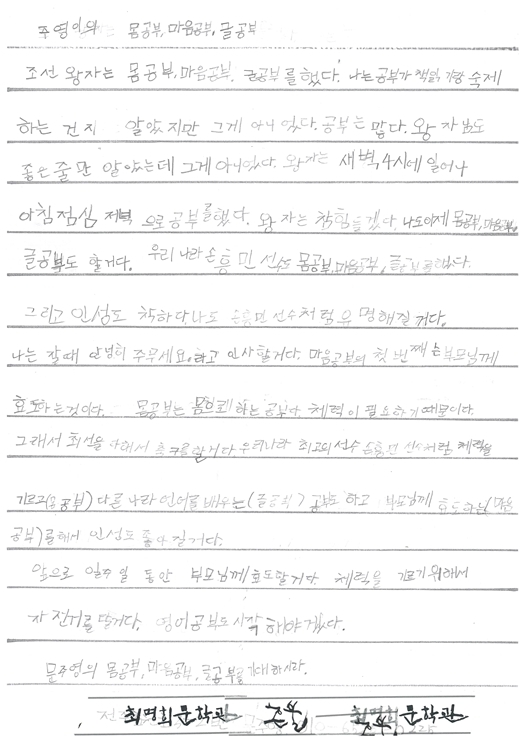 주영이의 몸공부, 마음공부, 글공부
조선 왕자는 몸공부, 마음공부, 글공부를 했다. 나는 공부가 책읽기랑 숙제
하는 건지 알았지만 그게 아니었다. 공부는 많다. 왕자님도
좋은줄만 알았는데 그게 아니었다. 왕자는 새벽4시에 일어나
아침 점심 저녁 으로 공부를했다. 왕자는 참힘들겠다. 나도이제 몸공부, 마음공부,
글공부도 할거다. 우리나라 손흥민 선수도 몸공부, 마음공부, 글공부를했다.
그리고 인성도 착하다 나도 손흥민 선수처럼 유명해질 거다.
나는 잘때 안녕히 주무세요. 하고 인사할거다. 마음공부의 첫번째는 부모님께
효도하는것이다. 몸공부는 몸으로 하는 공부다. 체력이 필요하기 때문이다.
그래서 최선을 다해서 축구를할거다 우리나라 최고의선수 손흥민 선수처럼 체력을
기르고(몸공부) 다른 나라 언어를 배우는(글공부) 공부도 하고 부모님께 효도하는(마음
공부)를해서 인성도 좋아질거다.
앞으로 일주일 동안 부모님께효도할거다. 체력을 기르기 위해서
자전거를 탈거다. 영어공부도 시작해야겠다.
문주영의 몸공부, 마음공부, 글공부를기대하시라.
최명희문학관 최명희문학관